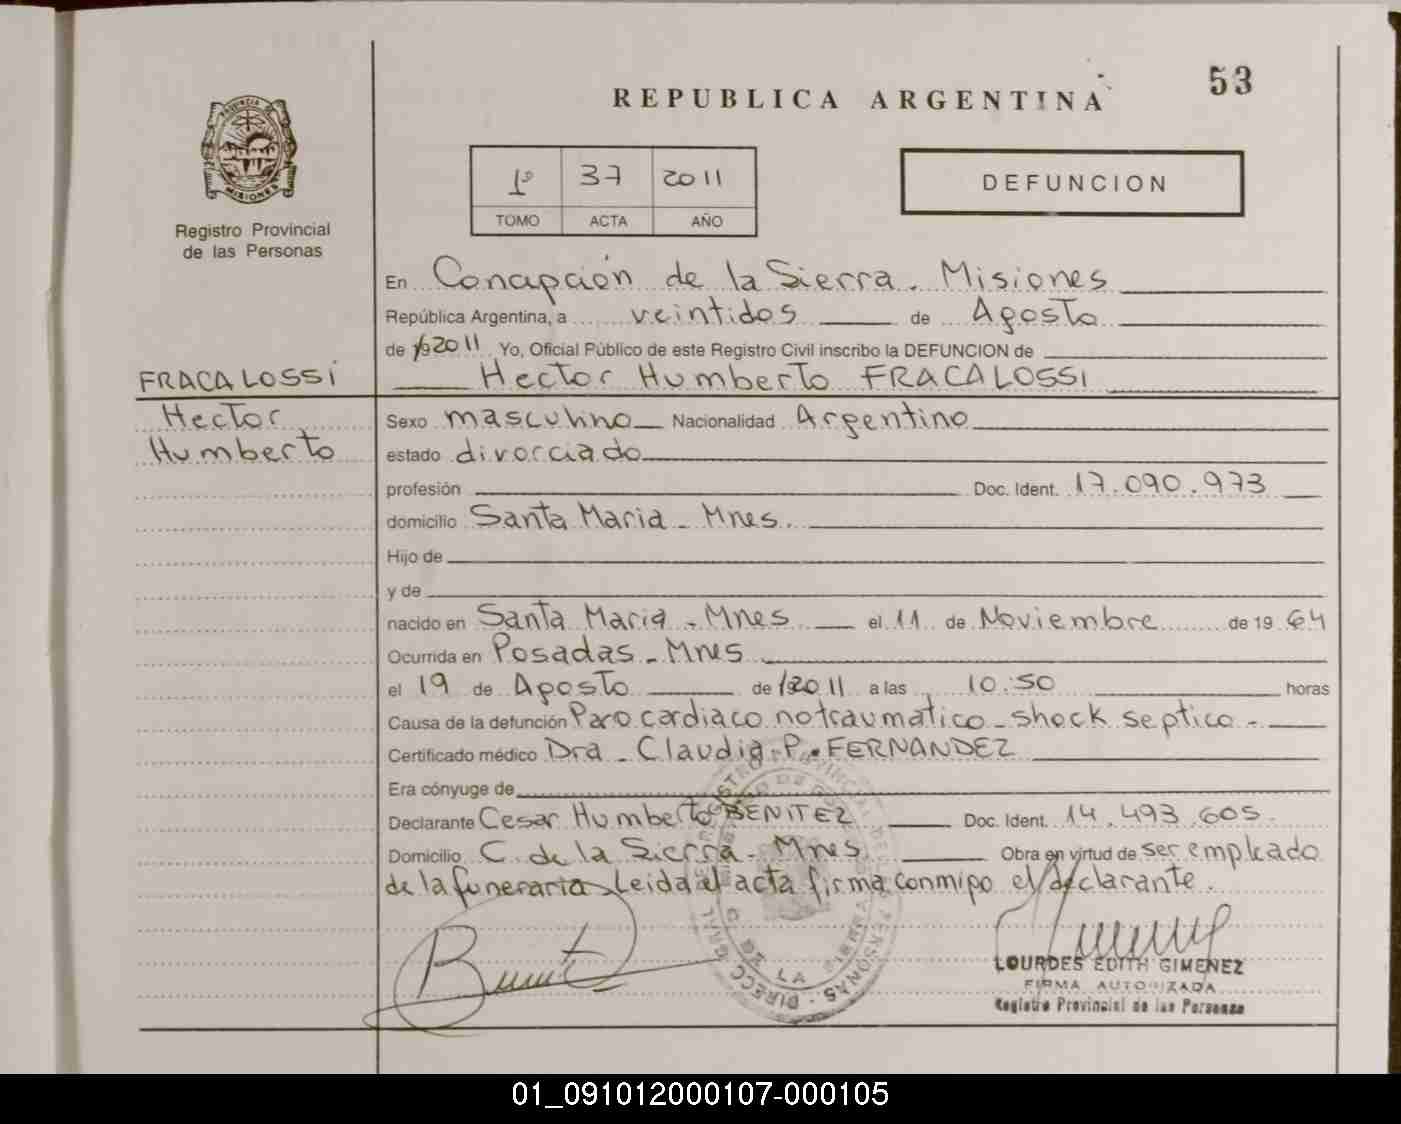 53
REPUBLICA ARGENTINA
PROVINCIA DE MISIONES
Registro Provincial
de las Personas
1º 37 2011
TOMO ACTA AÑO
DEFUNCION
En Concepción de la Sierra. Misiones
República Argentina, a veintidos de Agosto
de 19 2011 Yo, Oficial Público de este Registro Civil inscribo la DEFUNCION de
Hector Humberto FRACALOSSI
FRACALOSSI
Hector
Humberto
Sexo masculino Nacionalidad Argentino
estado divorciado
profesión Doc. Ident. 17.090.973
domicilio Santa Maria - Mnes.
Hijo de
y de
nacido en Santa Maria - Mnes el 11 de Noviembre de 19 64
Ocurrida en Posadas - Mnes
el 19 de Agosto de 19 2011 a las 10:50 horas
Causa de la defunción Paro cardiaco no traumatico - shock septico -
Certificado médico Dra - Claudia P. FERNANDEZ
Era cónyuge de
Declarante Cesar Humberto BENITEZ Doc. Ident. 14.493.605.
Domicilio C. de la Sierra - Mnes Obra en virtud de ser empleado
de la funeraria - Leida el acta firma conmigo el declarante.
LOURDES EDITH GIMENEZ
FIRMA AUTORIZADA
Registro Provincial de las Personas
01_091012000107-000105